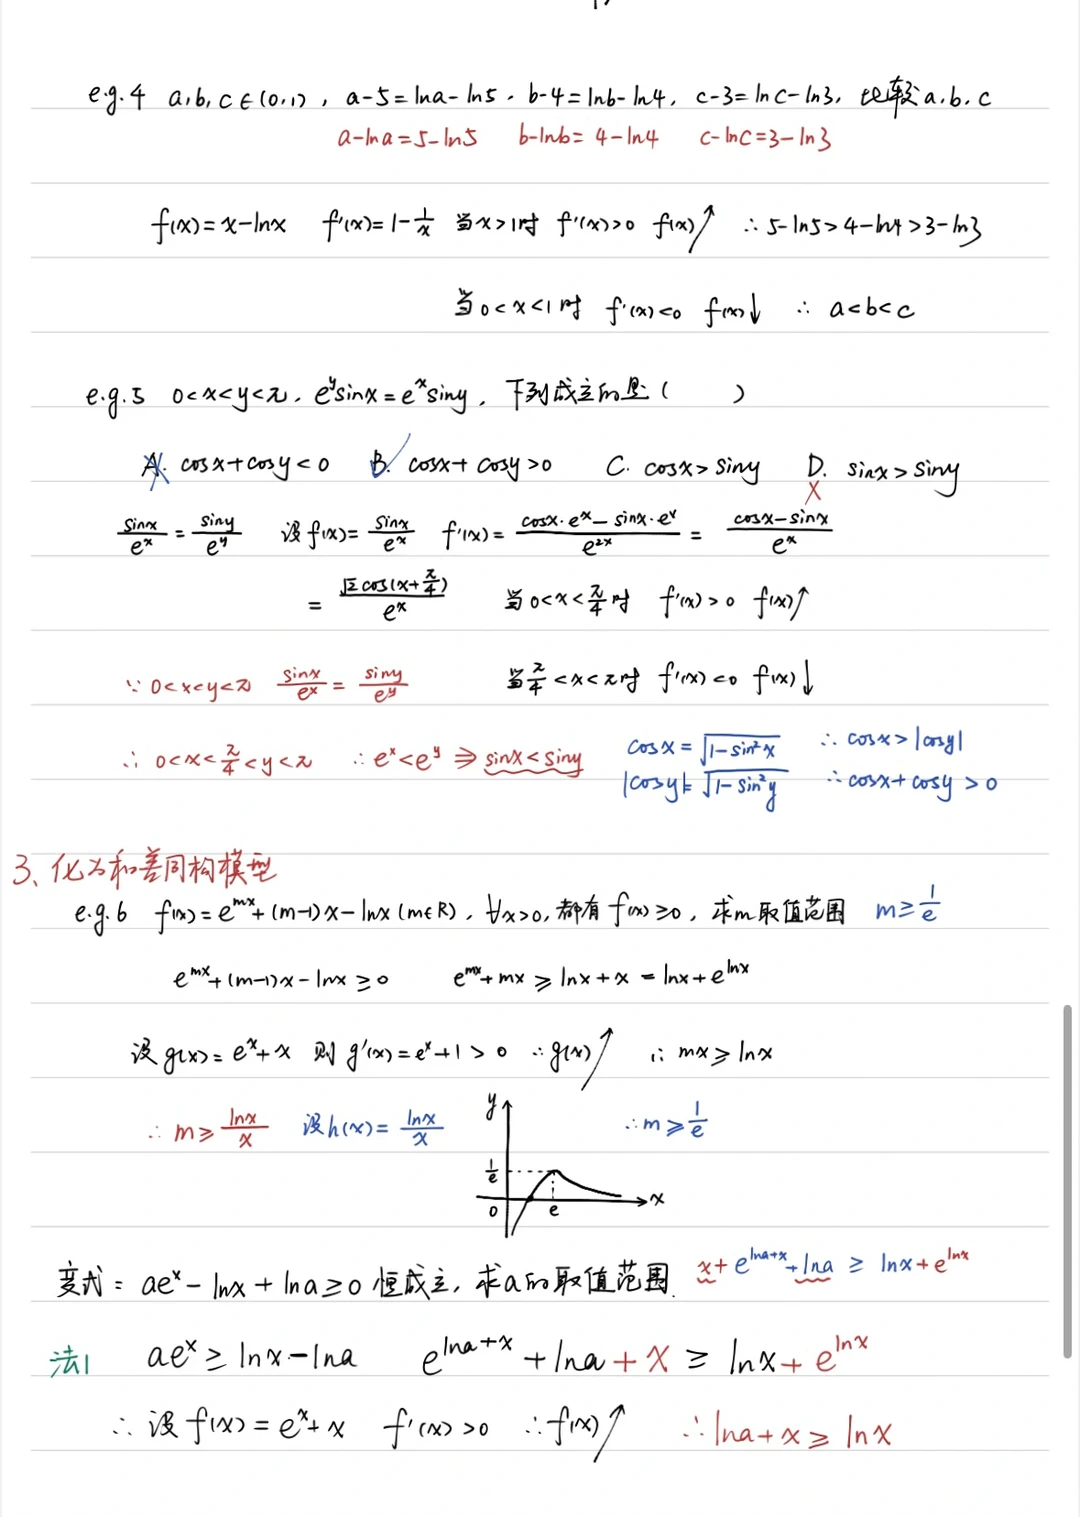 e.g.4 a,b,c∈(0,1), a-5=lna-ln5, b-4=lnb-ln4, c-3=lnc-ln3, 比较a,b,c
a-lna=5-ln5 b-lnb=4-ln4 c-lnc=3-ln3
f(x)=x-lnx f'(x)=1-1/x 当x>1时 f'(x)>0 f(x)↗ ∴5-ln5>4-ln4>3-ln3
当0<x<1时 f'(x)<0 f(x)↓ ∴ a<b<c
e.g.5 0<x<y<π, e^y sinx=e^x siny, 下列成立的是( )
A. cosx+cosy<0 B. cosx+cosy>0 C. cosx>siny D. sinx>siny
sinx/e^x = siny/e^y 设f(x)=sinx/e^x f'(x)=(cosx·e^x-sinx·e^x)/e^2x = (cosx-sinx)/e^x
= √2cos(x+π/4)/e^x 当0<x<π/4时 f'(x)>0 f(x)↑
∵0<x<y<π sinx/e^x = siny/e^y 当π/4<x<π时 f'(x)<0 f(x)↓
∴0<x<π/4<y<π ∴e^x<e^y ⇒ sinx<siny cosx=√(1-sin²x) ∴cosx>|cosy|
|cosy|=√(1-sin²y) ∴cosx+cosy>0
3、化为和差同构模型
e.g.6 f(x)=e^mx+(m-1)x-lnx(m∈R), ∀x>0,都有f(x)≥0, 求m取值范围 m≥1/e
e^mx+(m-1)x-lnx≥0 e^mx+mx≥lnx+x=lnx+e^lnx
设g(x)=e^x+x 则g'(x)=e^x+1>0 ∴g(x)↗ ∴mx≥lnx
∴m≥lnx/x 设h(x)=lnx/x ∴m≥1/e
y
1/e
0 e x
变式: ae^x-lnx+lna≥0恒成立, 求a的取值范围. x+e^(lna+x)+lna≥lnx+e^lnx
法1 ae^x≥lnx-lna e^(lna+x)+lna+x≥lnx+e^lnx
∴设f(x)=e^x+x f'(x)>0 ∴f(x)↗ ∴lna+x≥lnx